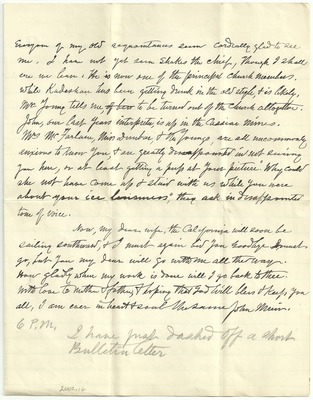 Everyone of my old acquaintances seem cordially glad to see
me. I have not yet seen Shakes the chief, though I shall
ere we leave. He is now one of the principal church members,
while Kadashan has been getting drunk in the old style, & is likely,
Mr Young tells me to be turned out of the church altogether.
John, our last years interpreter, is up in the Cassiar mines.
Mrs McFarlane, Miss Dunbar & the Youngs are all uncommonly
anxious to know you & are greatly disappointed in not seeing
you here, or at least getting a peep at your picture. Why could
she not have come up & staid with us while you were
about your ice business, they ask in disappointed
tone of voice.
Now, my dear wife, the California will soon be
sailing southward, & I must again bid you Goodbye. I must
go, but you my dear will go with me all the way.
How gladly when my work is done will I go back to thee.
With love to mother & father, & hoping that God will bless & keep you
all, I am ever in heart & soul the same John Muir.
6 P.M.
I have just dashed off a short
Bulletin letter